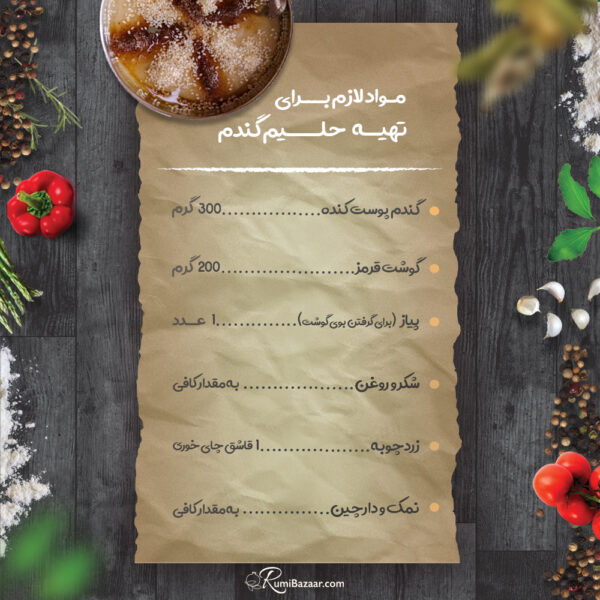 مواد لازم برای
تهیه حلیم گندم
گندم پوست کنده.................300 گرم
گوشت قرمز.......................200 گرم
پیاز (برای گرفتن بوی گوشت)..............1 عدد
شکر و روغن................... به مقدار کافی
زردچوبه...................1 قاشق چای خوری
نمک و دارچین............... به مقدار کافی
RumiBazaar.com